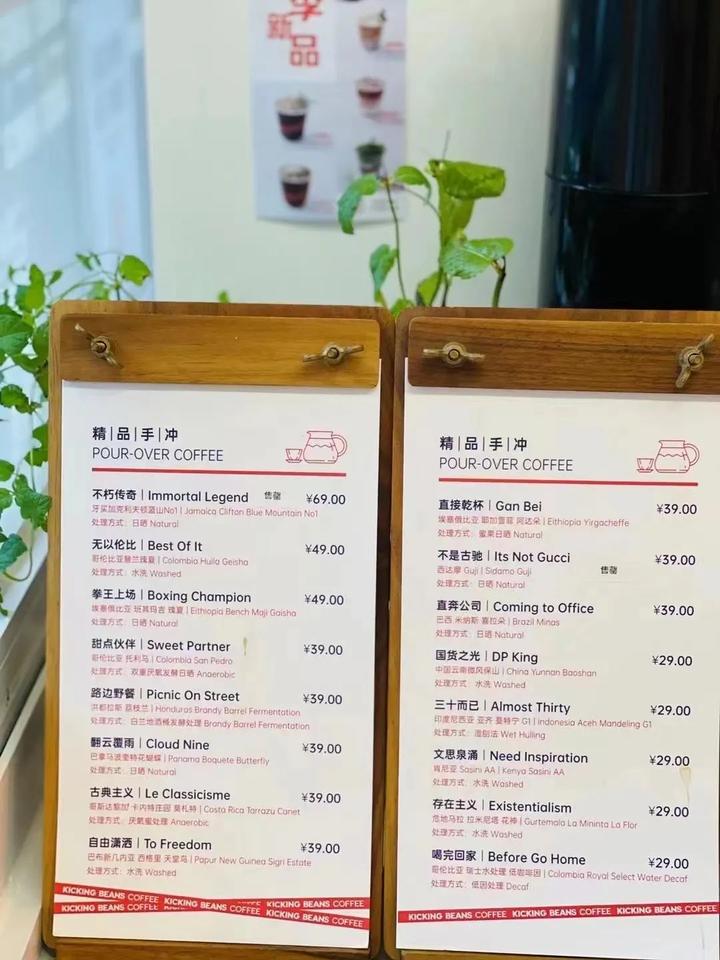 季
新
品
精|品|手|冲
POUR-OVER COFFEE
不朽传奇 | Immortal Legend 售罄 ¥69.00
牙买加克利夫顿蓝山No1 | Jamaica Cliftan Blue Mountain No1
处理方式: 日晒 Natural
无以伦比 | Best Of It ¥49.00
哥伦比亚慧兰瑰夏 | Colombia Huila Geisha
处理方式: 水洗 Washed
拳王上场 | Boxing Champion ¥49.00
埃塞俄比亚 班其玛吉 瑰夏 | Eithiopia Bench Maji Gaisha
处理方式: 日晒 Natural
甜点伙伴 | Sweet Partner ¥39.00
哥伦比亚 托利马 | Colombia San Pedro
处理方式: 双重厌氧发酵日晒 Anaerobic
路边野餐 | Picnic On Street ¥39.00
洪都拉斯 荔枝兰 | Honduras Brandy Barrel Fermentation
处理方式: 白兰地酒桶发酵处理 Brandy Barrel Fermentation
翻云覆雨 | Cloud Nine ¥39.00
巴拿马波奎特花蝴蝶 | Panama Boquete Butterfly
处理方式: 日晒 Natural
古典主义 | Le Classicisme ¥39.00
哥斯达黎加 卡内特庄园 莫札特 | Costa Rica Tarrazu Canet
处理方式: 厌氧蜜处理 Anaerobic
自由潇洒 | To Freedom ¥39.00
巴布新几内亚 西格里 天堂鸟 | Papur New Guinea Sigri Estate
处理方式: 水洗 Washed
KICKING BEANS COFFEE KICKING BEANS COFFEE KICKING BEANS COFFEE
KICKING BEANS COFFEE KICKING BEANS COFFEE KICKING BEANS COFFEE
精|品|手|冲
POUR-OVER COFFEE
直接乾杯 | Gan Bei ¥39.00
埃塞俄比亚 耶加雪菲 阿达朵 | Eithiopia Yirgacheffe
处理方式: 蜜果日晒 Natural
不是古驰 | Its Not Gucci ¥39.00
西达摩 Guji | Sidamo Guji 售罄
处理方式: 日晒 Natural
直奔公司 | Coming to Office ¥39.00
巴西 米纳斯 喜拉朵 | Brazil Minas
处理方式: 日晒 Natural
国货之光 | DP King ¥29.00
中国云南微风保山 | China Yunnan Baoshan
处理方式: 水洗 Washed
三十而已 | Almost Thirty ¥29.00
印度尼西亚 亚齐 曼特宁 G1 | Indonesia Aceh Mandeling G1
处理方式: 湿刨法 Wet Hulling
文思泉涌 | Need Inspiration ¥29.00
肯尼亚 Sasini AA | Kenya Sasini AA
处理方式: 水洗 Washed
存在主义 | Existentialism ¥29.00
危地马拉 拉米尼塔 花神 | Gurtemala La Mininta La Flor
处理方式: 水洗 Washed
喝完回家 | Before Go Home ¥29.00
哥伦比亚 瑞士水处理 低咖啡因 | Colombia Royal Select Water Decaf
处理方式: 低因处理 Decaf
KICKING BEANS COFFEE KICKING BEANS COFFEE KICKING BEANS COFFEE